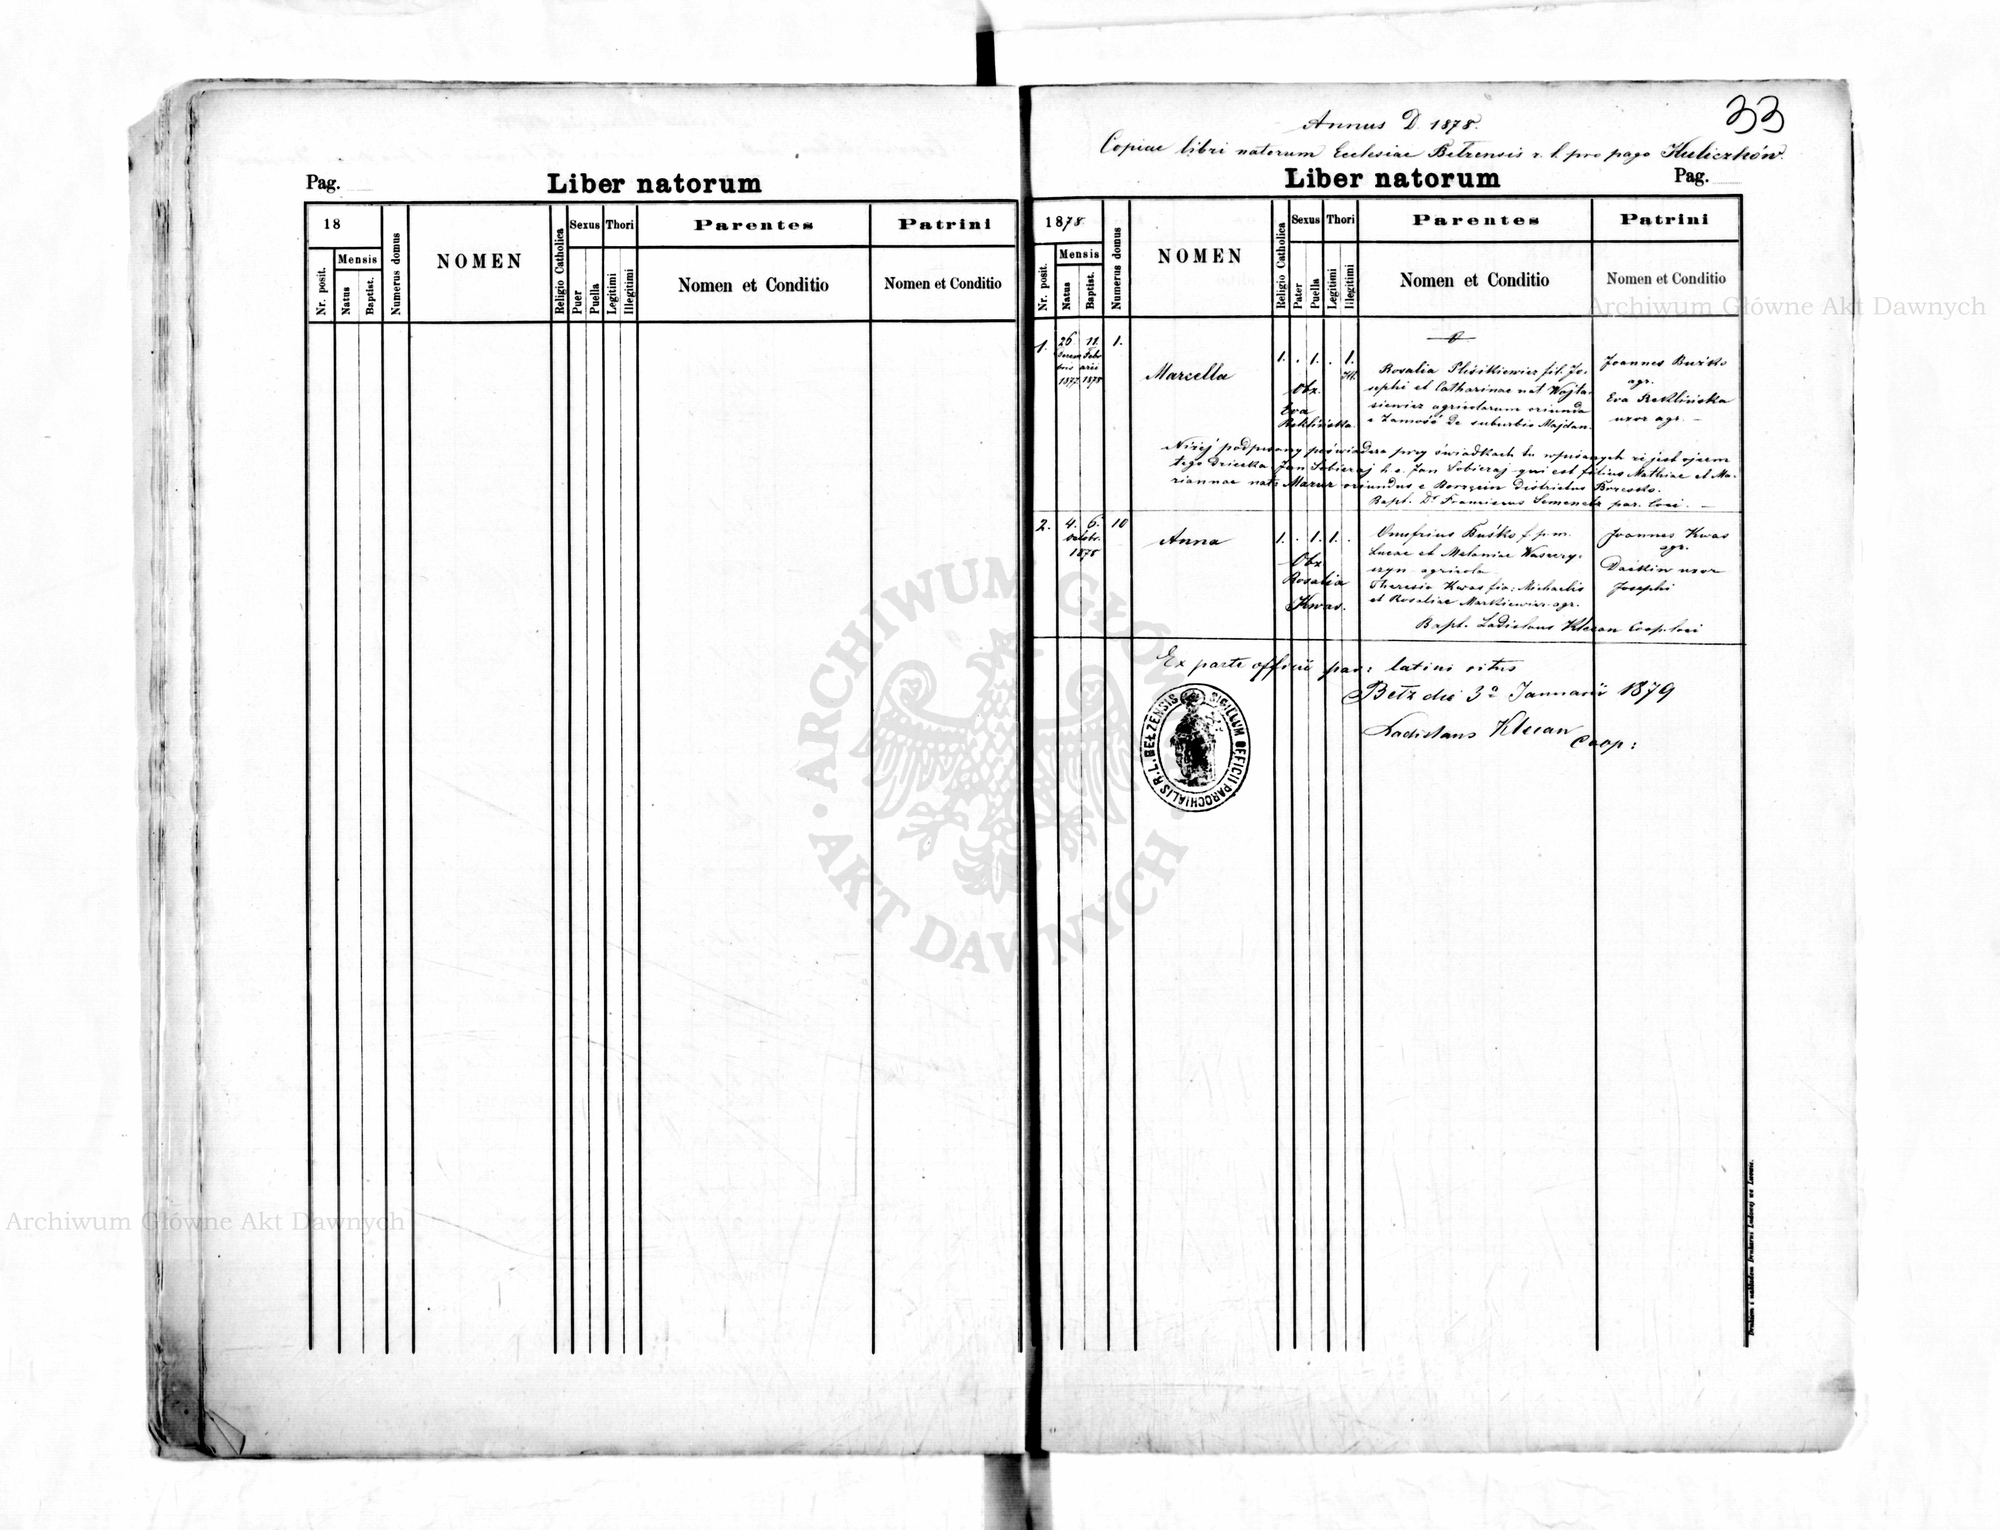 33
Annus D. 1878.
Copiae libri natorum Ecclesiae Bełzensis r. l. pro pago Kuliczków.
Pag.
Liber natorum
18
Nr. posit.
Mensis
Natus
Baptist.
Numerus domus
NOMEN
Religio Catholica
Sexus
Puer
Puella
Thori
Legitimi
Illegitimi
Parentes
Nomen et Conditio
Patrini
Nomen et Conditio
Liber natorum
Pag.
1878
Nr. posit.
Mensis
Natus
Baptist.
Numerus domus
NOMEN
Religio Catholica
Sexus
Pater
Puella
Thori
Legitimi
Illegitimi
Parentes
Nomen et Conditio
Patrini
Nomen et Conditio
1. 26 11. 1.
1877 1878
Marcella
1. . 1. . 1.
Ill.
Obz.
Eva
Reklińska.
Rosalia Pliśikiewicz fil. Jo-
sephi et Catharinae nat. Wojta-
siewicz agricolarum oriunda
e Zamość de suburbio Majdan.
Joannes Buśko
agr.
Eva Reklińska
uxor agr. –
Niżej podpisany poświadcza przy świadkach tu wpisanych że jest ojcem
tego dziecka Jan Sobieraj h. e. Jan Sobieraj qui est filius Mathiae et Ma-
riannae natae Mazur oriundus e Borzęcin Districtus Brzesko.
Bapt. Dr Franciscus Semenetz par. loci. –
2. 4. 6. 10
Octobr.
1878
Anna
1. . 1. 1. .
Obz
Rosalia
Kwas.
Onufrius Buśko f. p. m.
Lucae et Melaniae Waszczy-
szyn agricola
Theresia Kwas fia: Michaelis
et Rosaliae Markiewicz agr.
Joannes Kwas
agr.
uxor
Josephi
Bapt. Ladislaus Klecan Coop. loci
Ex parte officii par: latini ritus
Bełz die 3a Januarii 1879
Ladislaus Klecan
Coop:
SIGILLUM OFFICII PAROCHIALIS R. L. BEŁZENSIS
Drukiem i nakładem Drukarni Ludowej we Lwowie.
Archiwum Główne Akt Dawnych
Archiwum Główne Akt Dawnych
ARCHIWUM GŁÓWNE AKT DAWNYCH